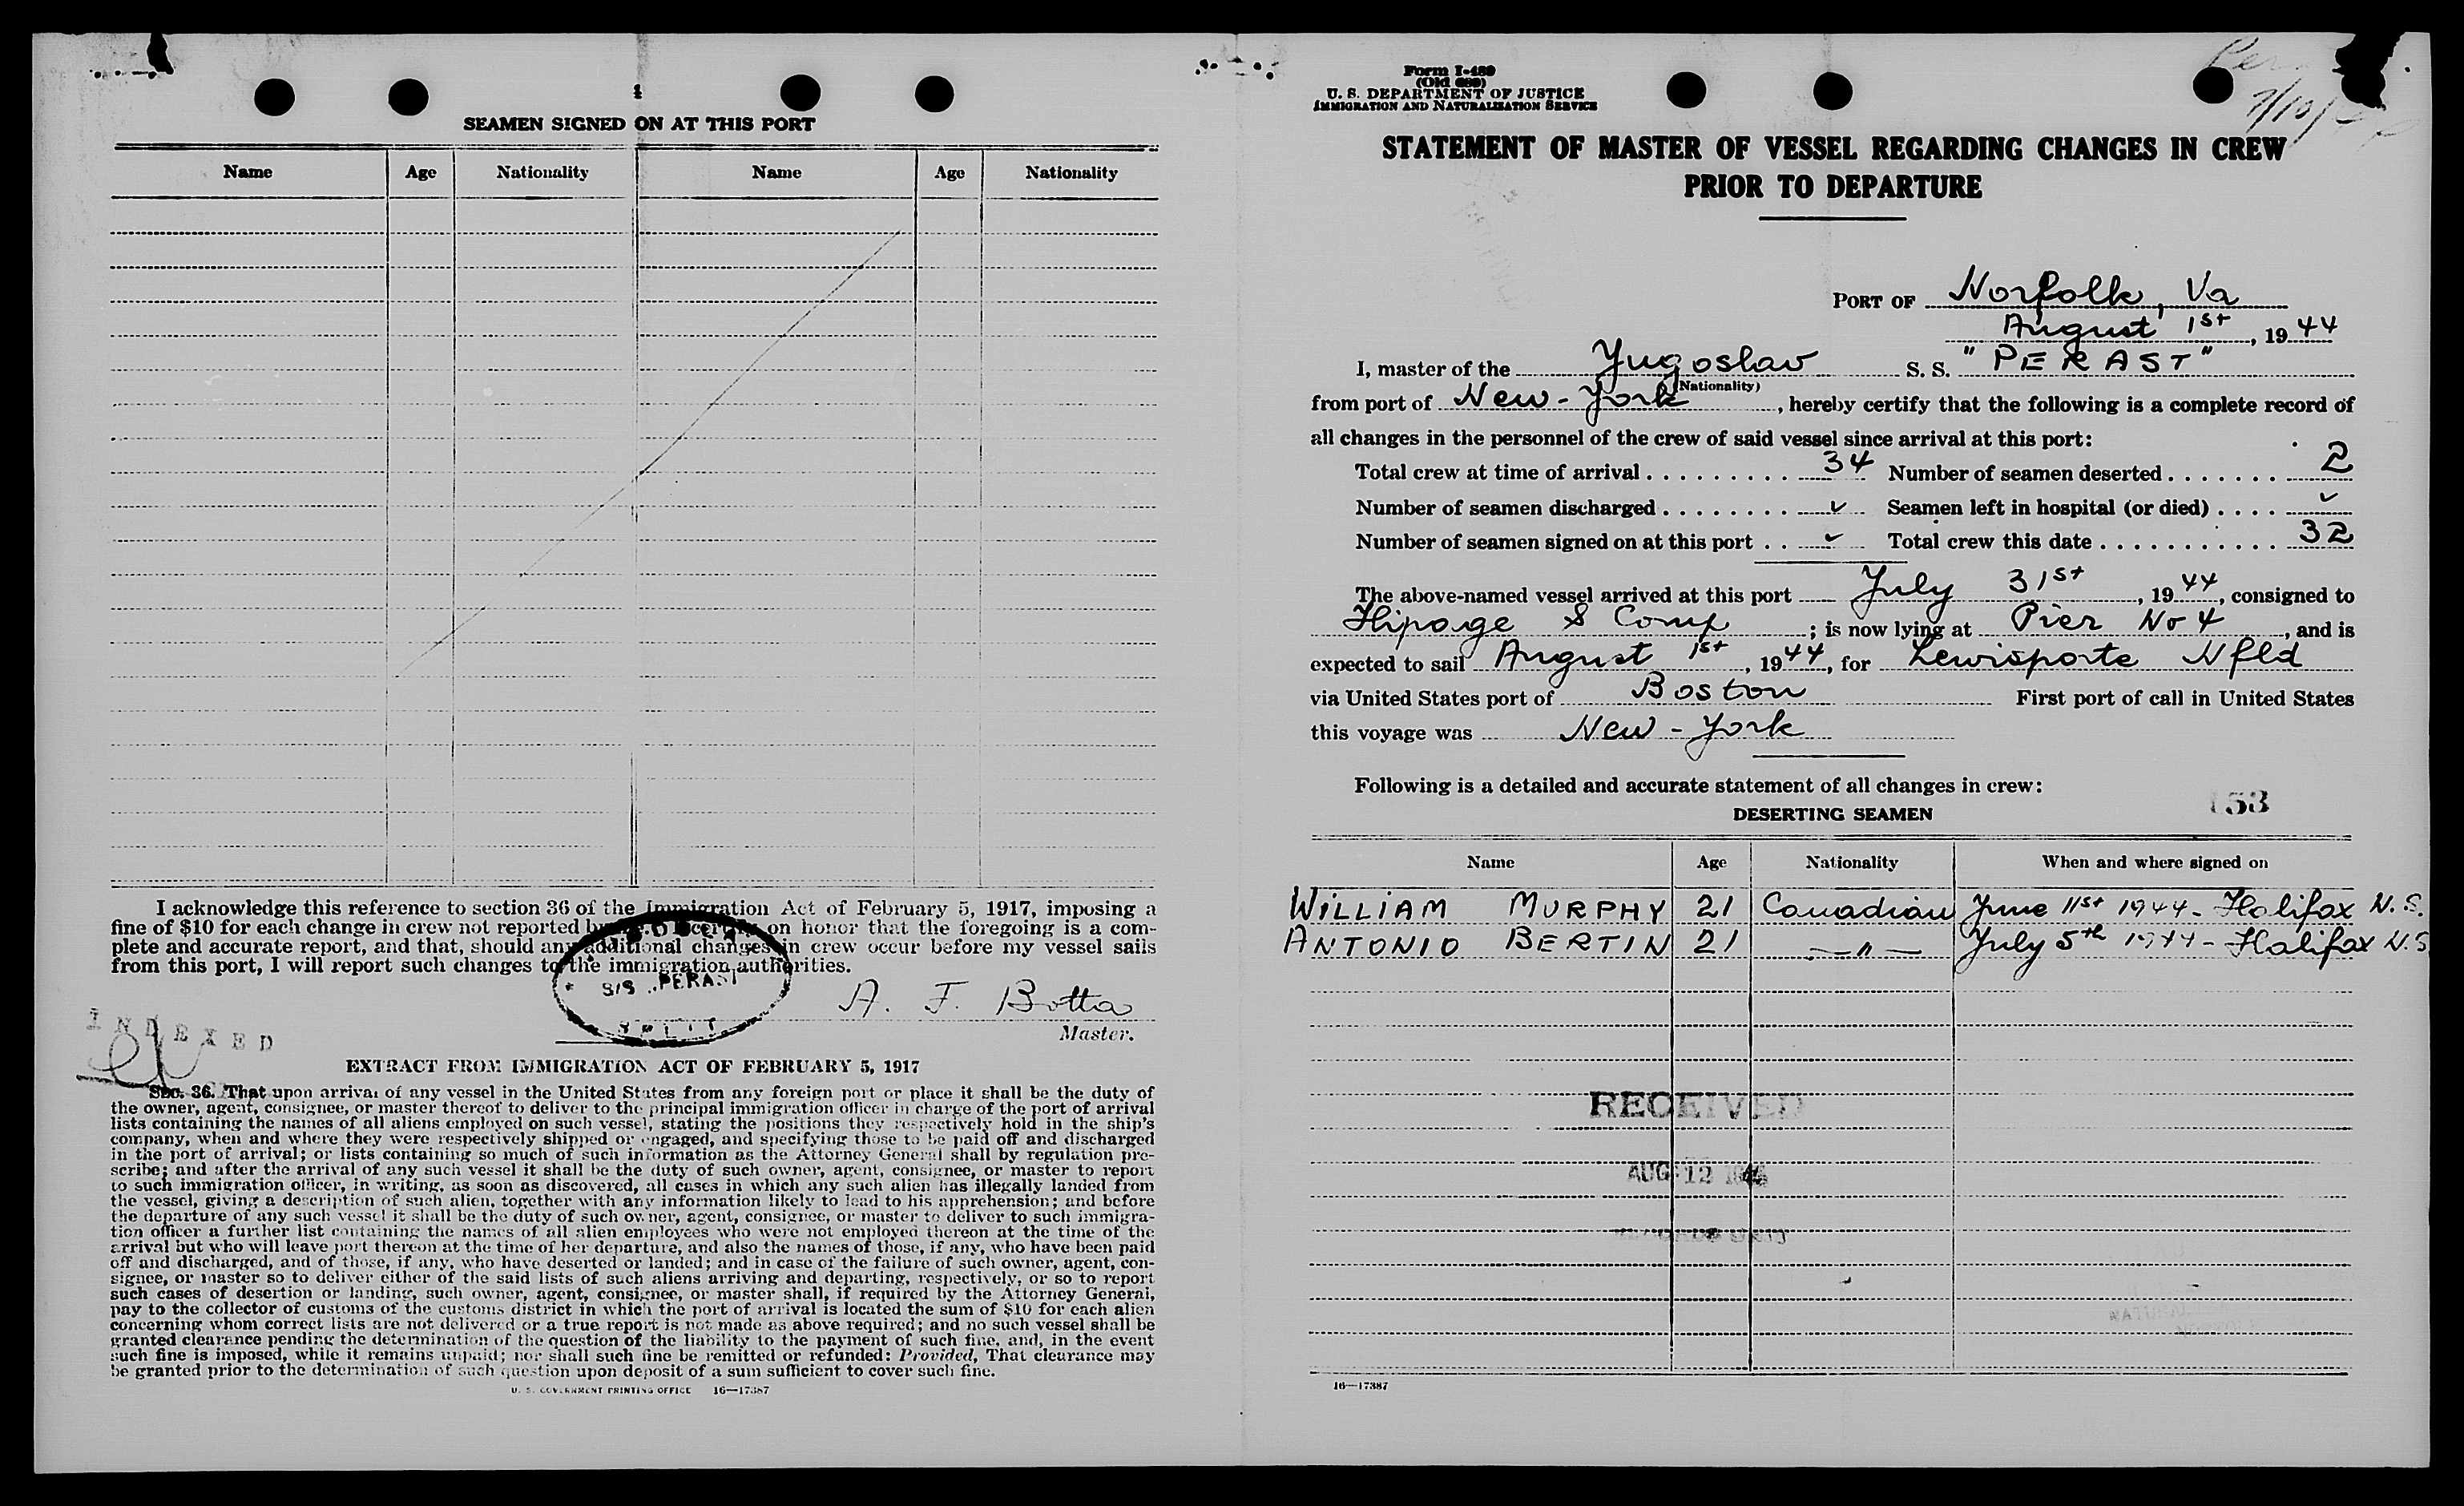 4
SEAMEN SIGNED ON AT THIS PORT
Name Age Nationality Name Age Nationality
I acknowledge this reference to section 36 of the Immigration Act of February 5, 1917, imposing a
fine of $10 for each change in crew not reported by me. I certify on honor that the foregoing is a com-
plete and accurate report, and that, should any additional changes in crew occur before my vessel sails
from this port, I will report such changes to the immigration authorities.
S/S „PERAST
SPLIT
A. F. Botta
Master.
INDEXED
EXTRACT FROM IMMIGRATION ACT OF FEBRUARY 5, 1917
Sec. 36. That upon arrival of any vessel in the United States from any foreign port or place it shall be the duty of
the owner, agent, consignee, or master thereof to deliver to the principal immigration officer in charge of the port of arrival
lists containing the names of all aliens employed on such vessel, stating the positions they respectively hold in the ship's
company, when and where they were respectively shipped or engaged, and specifying those to be paid off and discharged
in the port of arrival; or lists containing so much of such information as the Attorney General shall by regulation pre-
scribe; and after the arrival of any such vessel it shall be the duty of such owner, agent, consignee, or master to report
to such immigration officer, in writing, as soon as discovered, all cases in which any such alien has illegally landed from
the vessel, giving a description of such alien, together with any information likely to lead to his apprehension; and before
the departure of any such vessel it shall be the duty of such owner, agent, consignee, or master to deliver to such immigra-
tion officer a further list containing the names of all alien employees who were not employed thereon at the time of the
arrival but who will leave port thereon at the time of her departure, and also the names of those, if any, who have been paid
off and discharged, and of those, if any, who have deserted or landed; and in case of the failure of such owner, agent, con-
signee, or master so to deliver either of the said lists of such aliens arriving and departing, respectively, or so to report
such cases of desertion or landing, such owner, agent, consignee, or master shall, if required by the Attorney General,
pay to the collector of customs of the customs district in which the port of arrival is located the sum of $10 for each alien
concerning whom correct lists are not delivered or a true report is not made as above required; and no such vessel shall be
granted clearance pending the determination of the question of the liability to the payment of such fine, and, in the event
such fine is imposed, while it remains unpaid; nor shall such fine be remitted or refunded: Provided, That clearance may
be granted prior to the determination of such question upon deposit of a sum sufficient to cover such fine.
U. S. GOVERNMENT PRINTING OFFICE 16—17387
Form I-489
(Old 689)
U. S. DEPARTMENT OF JUSTICE
IMMIGRATION AND NATURALIZATION SERVICE
STATEMENT OF MASTER OF VESSEL REGARDING CHANGES IN CREW
PRIOR TO DEPARTURE
PORT OF Norfolk, Va
August 1st, 1944
I, master of the Yugoslav S. S. "PERAST"
(Nationality)
from port of New-York, hereby certify that the following is a complete record of
all changes in the personnel of the crew of said vessel since arrival at this port:
Total crew at time of arrival 34 Number of seamen deserted 2
Number of seamen discharged ✓ Seamen left in hospital (or died) ✓
Number of seamen signed on at this port ✓ Total crew this date 32
The above-named vessel arrived at this port July 31st, 1944, consigned to
Hipage & Comp; is now lying at Pier No 4, and is
expected to sail August 1st, 1944, for Lewisporte Nfld
via United States port of Boston First port of call in United States
this voyage was New-York
Following is a detailed and accurate statement of all changes in crew:
153
DESERTING SEAMEN
Name Age Nationality When and where signed on
WILLIAM MURPHY 21 Canadian June 11st 1944 - Halifax N.S.
ANTONIO BERTIN 21 —„— July 5th 1944 - Halifax N.S
RECEIVED
AUG 12
16—17387